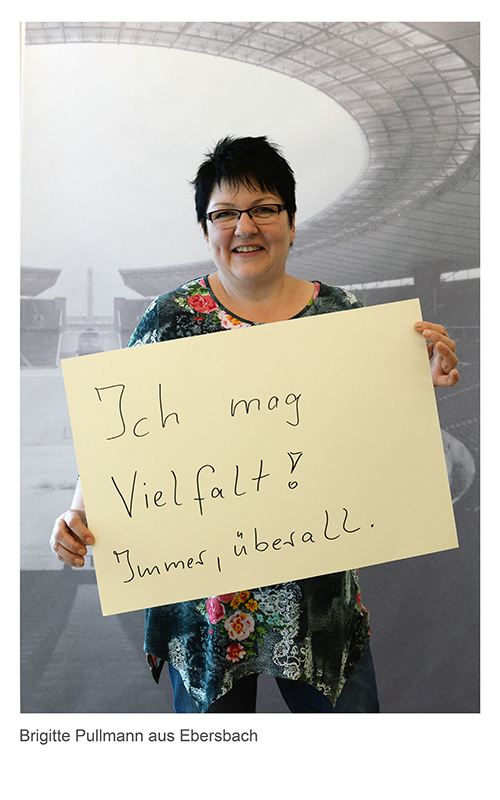 Ich mag
Vielfalt!
Immer, überall.
Brigitte Pullmann aus Ebersbach